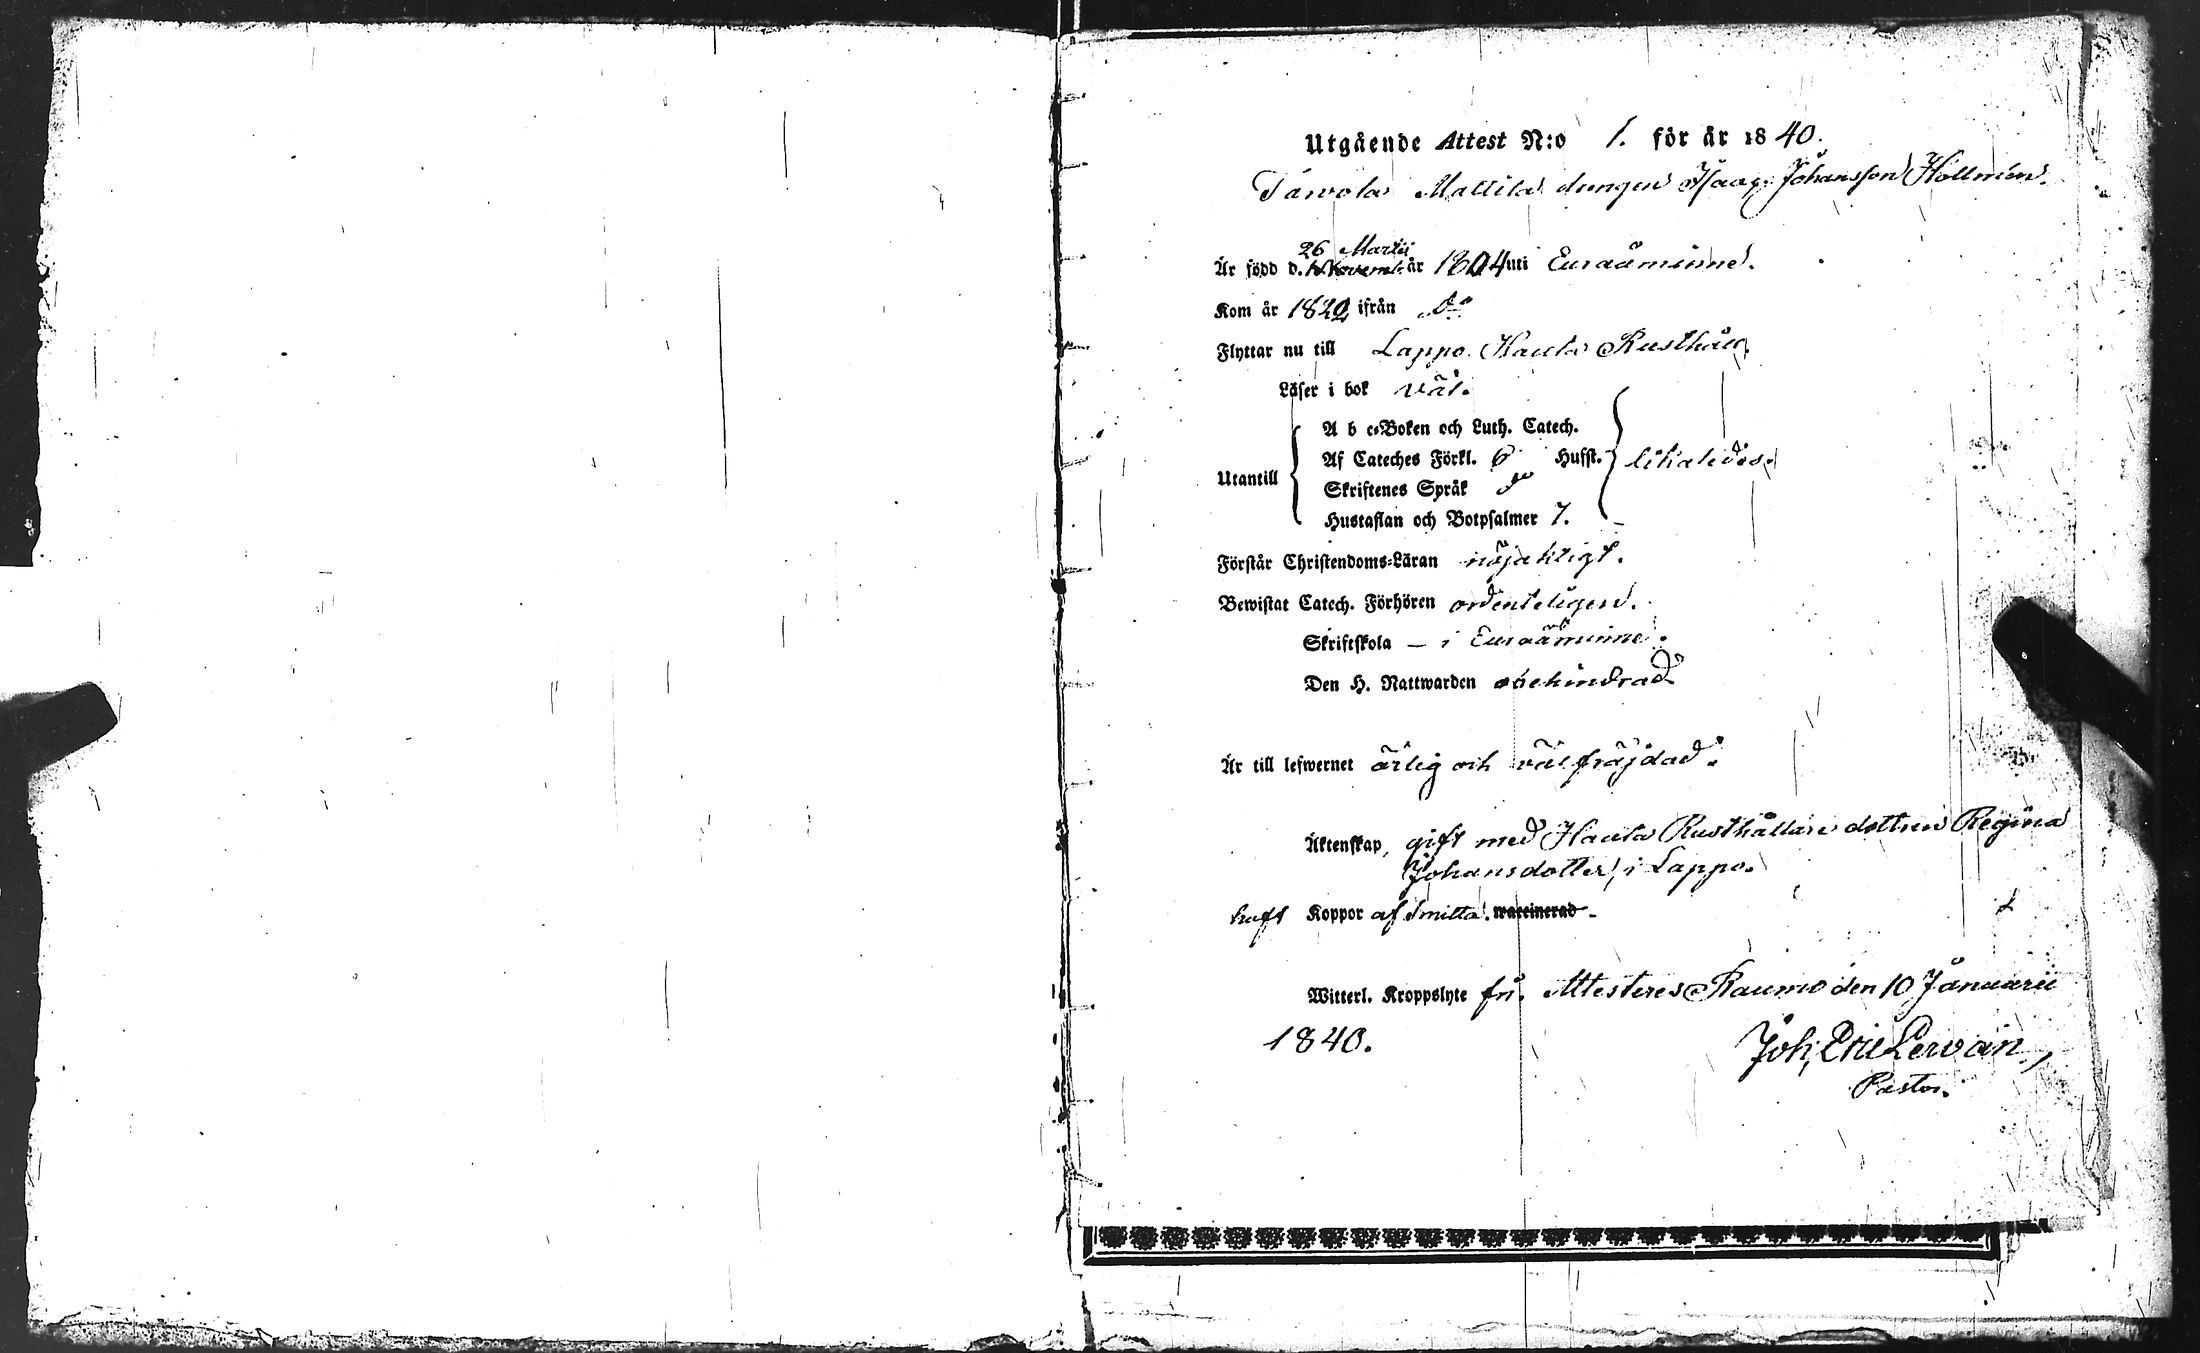 Utgående Attest N:o 1. för år 1840.
Tarvola Mattila drengen Isaac Johansson Hollmén.
26 Martii
Är född d. Novemb. år 1804 uti Euraåminne.
Kom år 1822 ifrån Do
Flyttar nu till Lappo Hauta Rusthåll.
Läser i bok väl.
A b c-Boken och Luth. Catech.
Utantill Af Cateches Förkl. 6 Hufst. likaledes.
Skriftenes Språk
Hustaflan och Botpsalmer 7.
Förstår Christendoms-Läran nöjaktigt.
Bewistat Catech. Förhören ordenteligen.
Skriftskola – i Euraåminne.
Den H. Nattwarden obehindrad.
Är till lefwernet ärlig och välfräjdad.
Äktenskap, gift med Hauta Rusthållare dottren Regina
Johansdotter, i Lappo.
haft Koppor af Smitta. waccinerad.
Witterl. Kroppslyte fri. Attesteres Raumo den 10 Januarii
1840.
Joh. Eric Lervain,
Pastor.